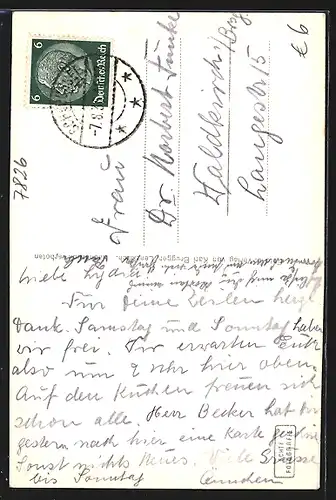 6 Deutsches Reich 6
-7.8.
€ 6
7826
Frau
Dr. Norbert Funke
Waldkirch i/
Brsg.
Langestr 15
Verlag von Karl Brugger
verboten
Liebe Lydia
Für Deine Zeilen herzl
Dank. Samstag und Sonntag haben
wir frei. Wir erwarten Euch
also um Uhr hier oben.
Auf den Kuchen freuen sich
schon alle. Herr Becker hat Dir
gestern nach hier eine Karte
Sonst nichts Neues. Viele Grüsse
bis Sonntag Ännchen
ECHTE
FOTOGRAFIE